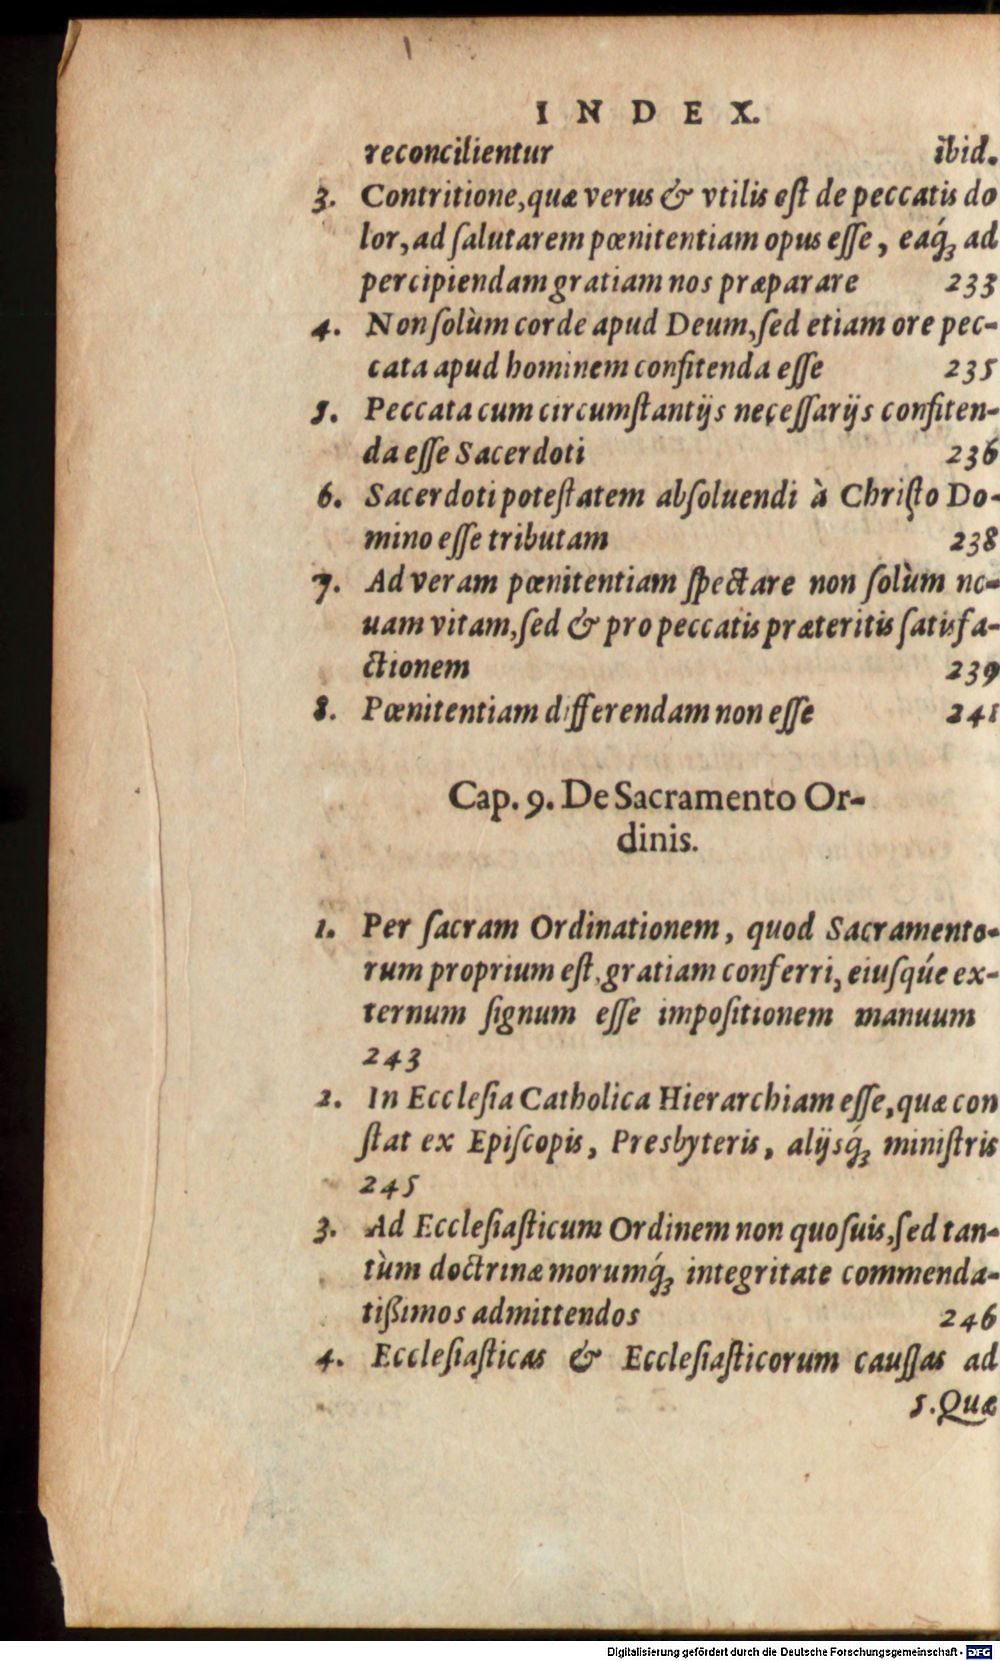 INDEX.
reconcilientur ibid.
3. Contritione, quæ verus & vtilis eſt de peccatis do
lor, ad ſalutarem pœnitentiam opus eſſe, eaq́ꝫ ad
percipiendam gratiam nos præparare 233
4. Non ſolùm corde apud Deum, ſed etiam ore pec-
cata apud hominem confitenda eſſe 235
5. Peccata cum circumſtantijs neceſſarijs confiten-
da eſſe Sacerdoti 236
6. Sacerdoti poteſtatem abſoluendi à Chriſto Do-
mino eſſe tributam 238
7. Ad veram pœnitentiam ſpectare non ſolùm no-
uam vitam, ſed & pro peccatis præteritis ſatisfa-
ctionem 239
8. Pœnitentiam differendam non eſſe 241
Cap. 9. De Sacramento Or-
dinis.
1. Per ſacram Ordinationem, quod Sacramento-
rum proprium eſt, gratiam conferri, eiuſqúe ex-
ternum ſignum eſſe impoſitionem manuum
243
2. In Eccleſia Catholica Hierarchiam eſſe, quæ con
ſtat ex Epiſcopis, Presbyteris, alijsq́ꝫ miniſtris
245
3. Ad Eccleſiaſticum Ordinem non quoſuis, ſed tan-
tùm doctrinæ morumq́ꝫ integritate commenda-
tißimos admittendos 246
4. Eccleſiaſticas & Eccleſiaſticorum cauſſas ad
5. Quæ
Digitalisierung gefördert durch die Deutsche Forschungsgemeinschaft - DFG